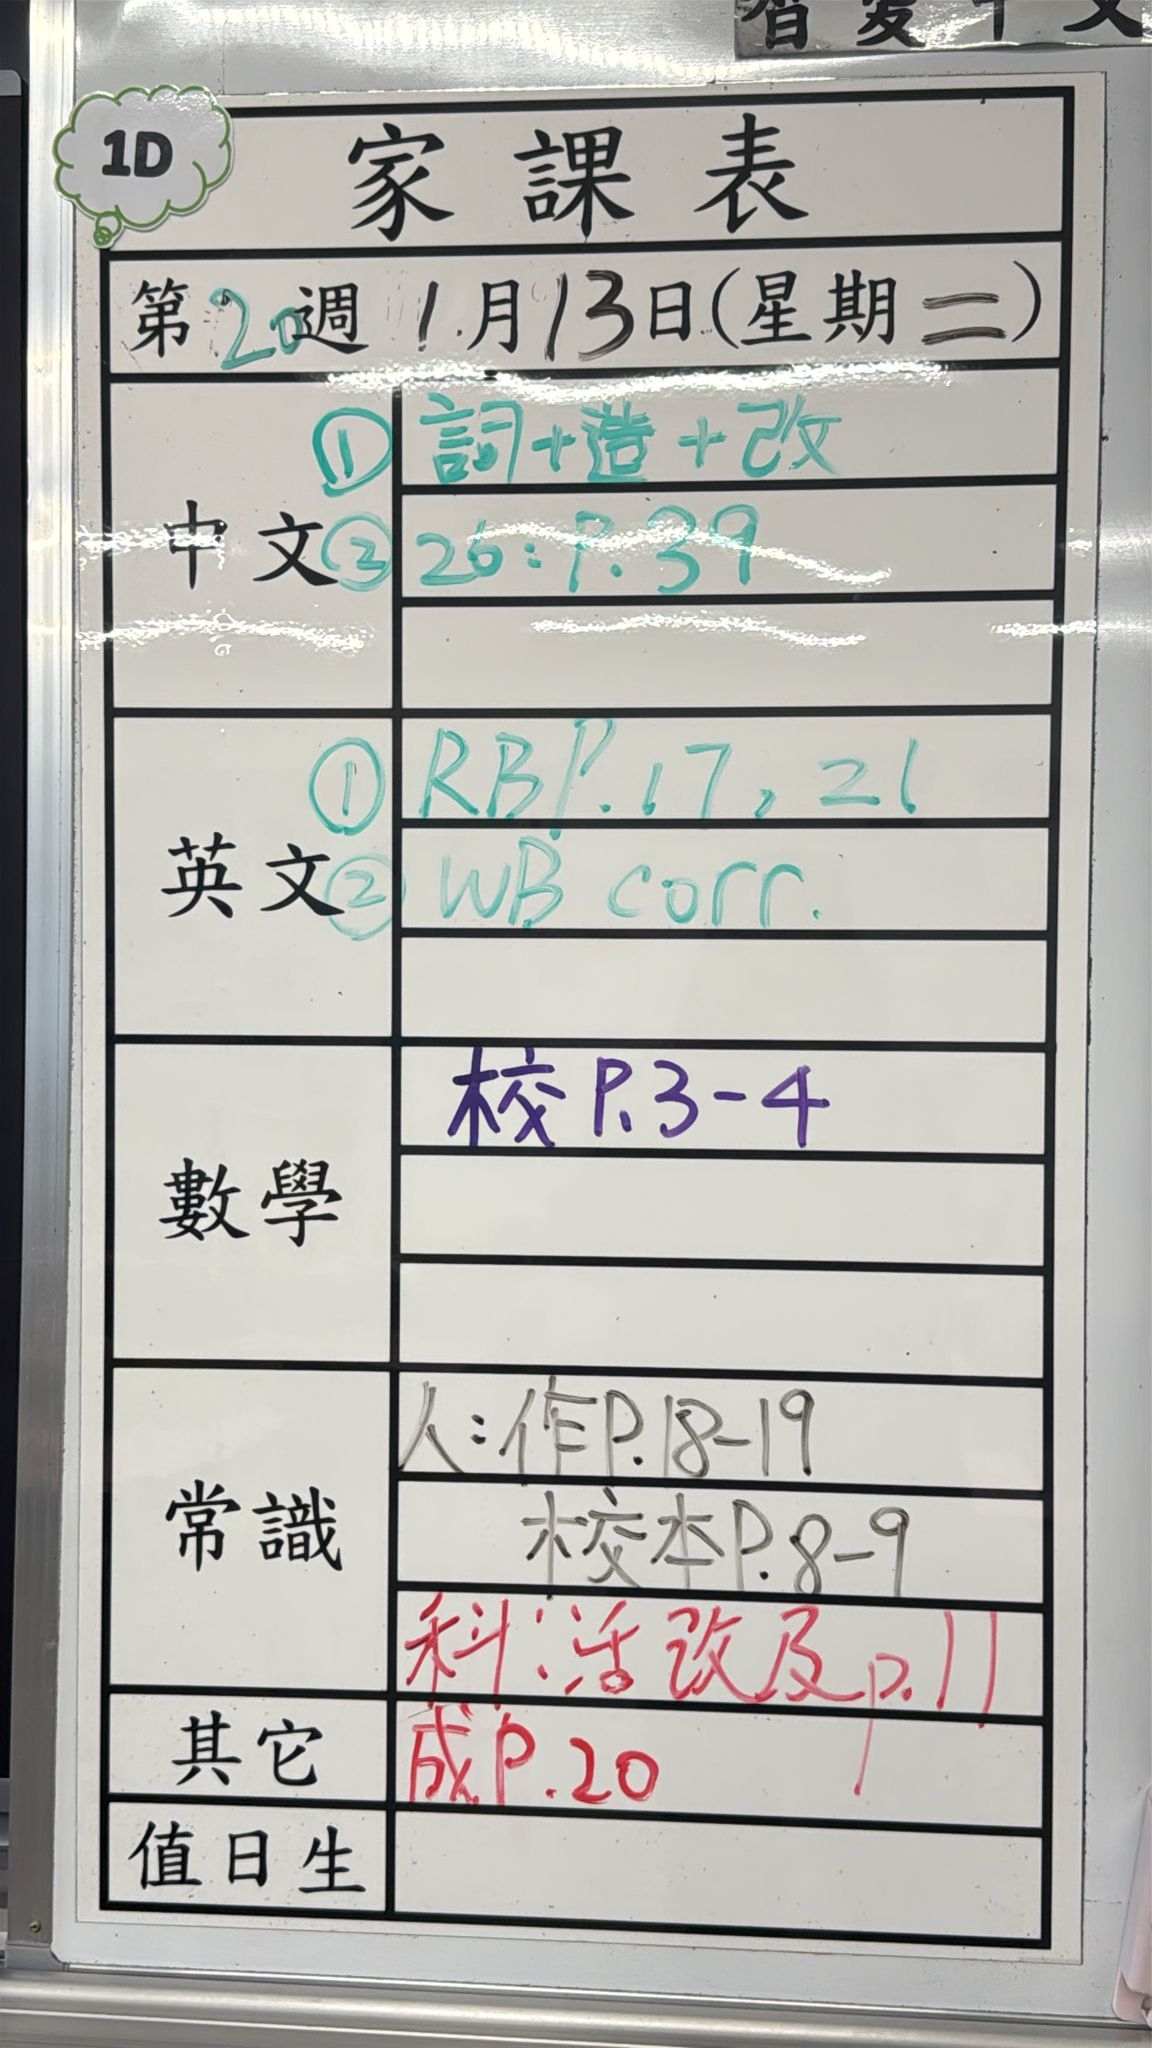 1D
家課表
第20週 1月13日(星期二)
中文
① 詞+造+改
② 26:P.39
英文
① RB P.17, 21
② WB corr.
數學
校 P.3-4
常識
人:作P.18-19
校本P.8-9
科:活改及p.11
其它
成P.20
值日生